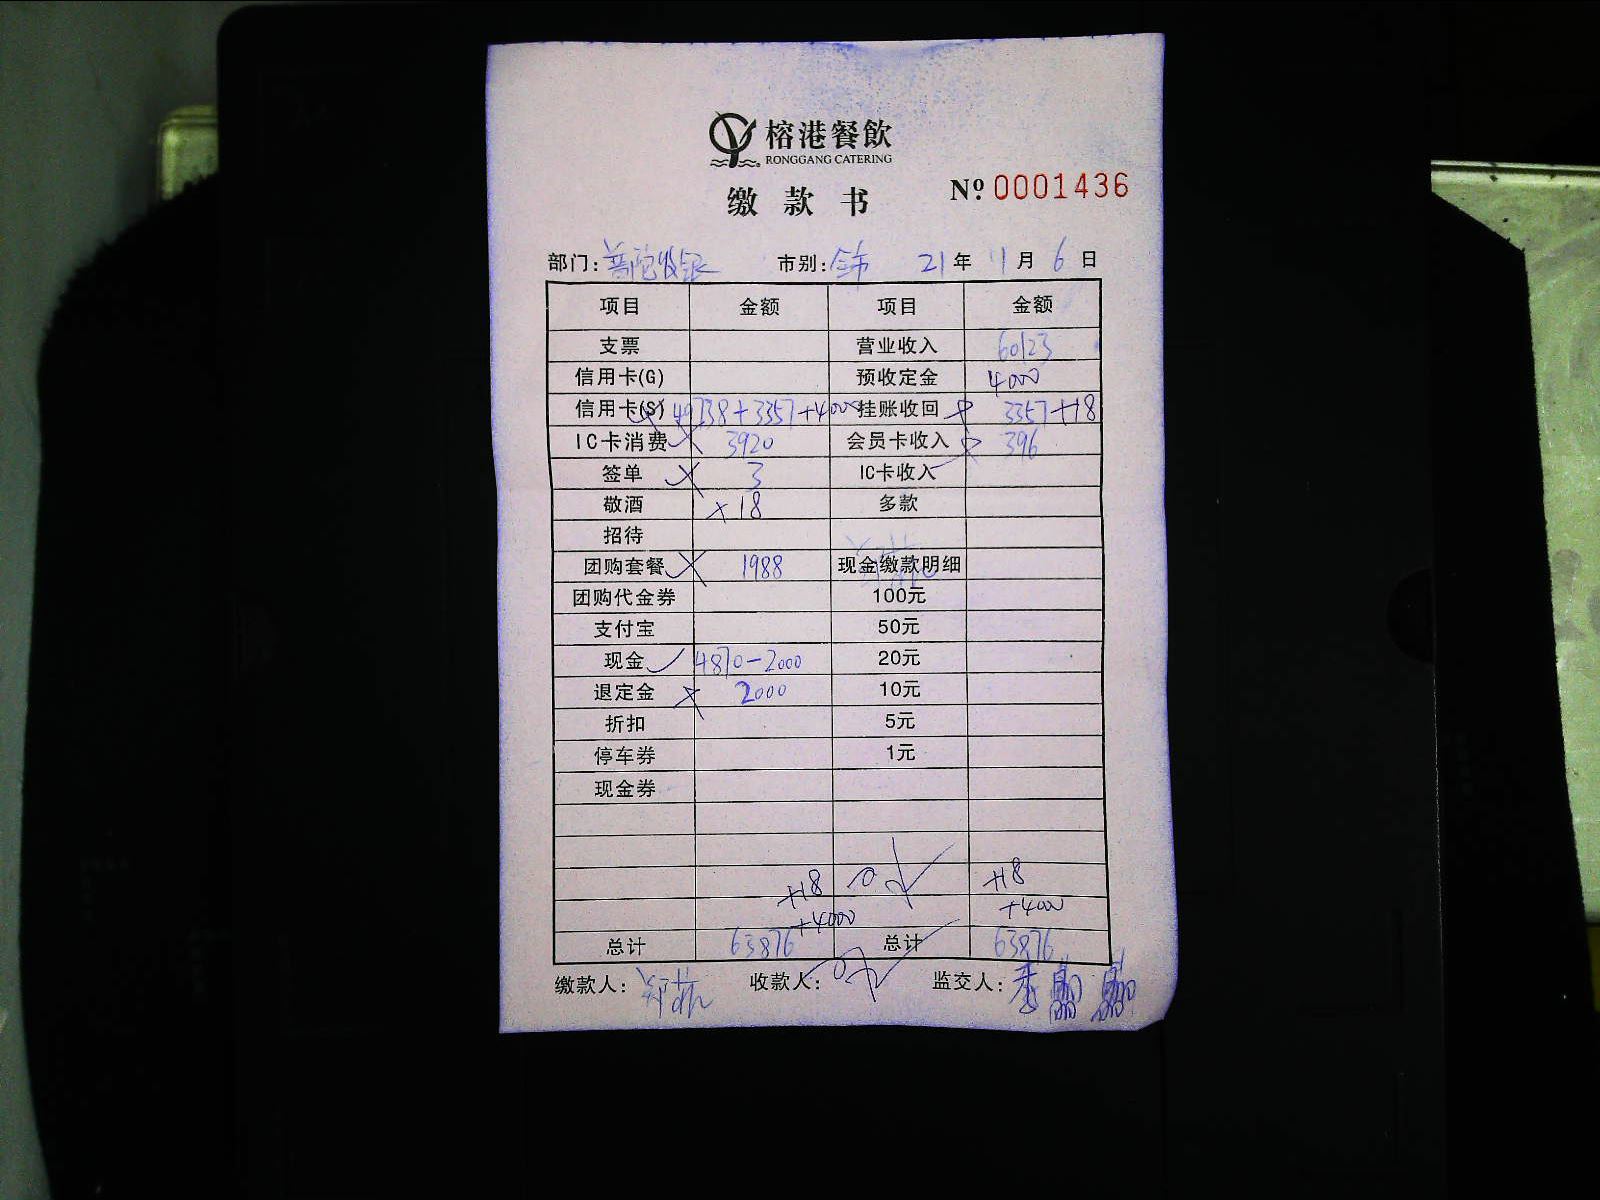 榕港餐飲
RONGGANG CATERING
缴款书 № 0001436
部门: 普陀收银 市别: 全市 21年 11月 6日
项目 金额 项目 金额
支票 营业收入 60123
信用卡(G) 预收定金 4000
信用卡(S) 49738+3357+4000 挂账收回 3357+18
IC卡消费 3920 会员卡收入 396
签单 3 IC卡收入
敬酒 +18 多款
招待
团购套餐 1988 现金缴款明细
团购代金券 100元
支付宝 50元
现金 4870-2000 20元
退定金 2000 10元
折扣 5元
停车券 1元
现金券
+18 +18
+4000 +4000
总计 63876 总计 63876
缴款人: 收款人: 监交人: